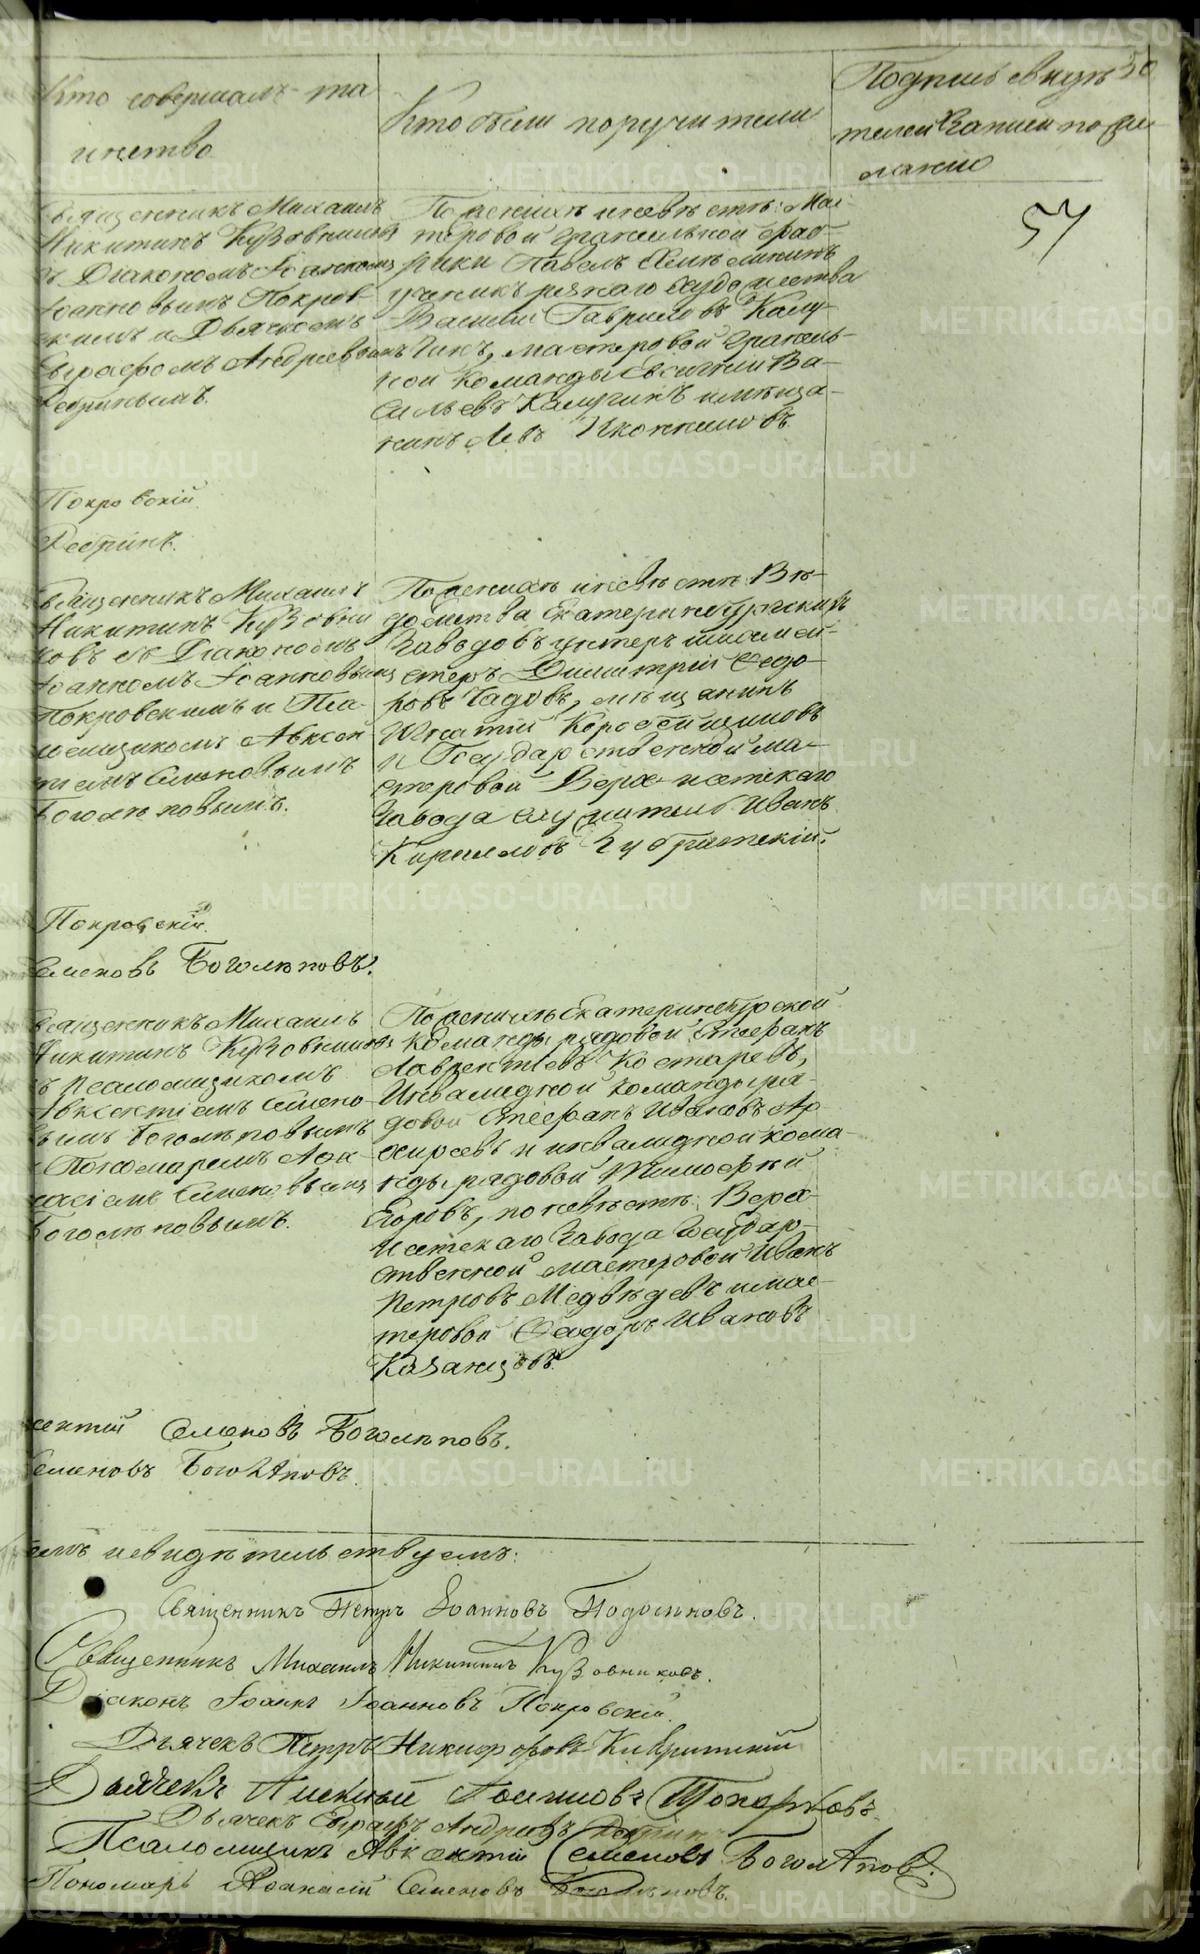 Кто совершалъ та
инство
Кто были поручители
Подпись свидѣ
телей записи по же
ланію
50
54
Священникъ Михаилъ
Никитинъ Кузовников
ъ Діакономъ Іоанномъ
Іоанновымъ Покров
скимъ и Дьячкомъ
Евграфомъ Андреевымъ
По женихѣ и невѣстѣ: Мас
теровой гранильной фаб
рики Павелъ
ученикъ рѣзнаго художества
Василій Гавриловъ Калу
гинъ, мастеровой граниль
ной команды Евсигній Ва
сильевъ Калугинъ и мѣща
нинъ Левъ Иконниковъ
Покровскій
священникъ Михаилъ
Никитинъ Кузовни
ковъ съ Діакономъ
Іоанномъ Іоанновымъ
Покровскимъ и Пса
ломщикомъ Авксен
тіемъ Семеновымъ
Боголѣповымъ.
По женихѣ и невѣстѣ: Вѣ
домства Екатеринбургскихъ
Заводовъ унтеръ шихмей
стеръ Димитрій Федо
ровъ Чадовъ, мѣщанинъ
Игнатій Коробейщиковъ
и Государственной ма
стеровой Верхъ-исетскаго
Завода служитель Иванъ
Кирилловъ Кубритскій.
Покровскій
Семеновъ Боголѣповъ.
Священникъ Михаилъ
Никитинъ Кузовников
ъ псаломщикомъ
Авксентіемъ Семено
вымъ Боголѣповымъ
и Пономаремъ Афа
насіемъ Семеновымъ
Боголѣповымъ.
По женихѣ Екатеринбургской
команды рядовой Стефанъ
Лаврентіевъ Костаревъ,
Инвалидной команды ря
довой Стефанъ Ивановъ
и инвалидной кома
нды рядовой Тимофей
Егоровъ, по невѣстѣ: Верхъ
Исетскаго Завода Государ
ственной мастеровой Иванъ
Петровъ Медвѣдевъ и мас
теровой Федоръ Ивановъ
Казанцовъ
сентій Семеновъ Боголѣповъ.
Семеновъ Боголѣповъ.
емъ и свидѣтельствуемъ:
Священникъ Петръ Іоанновъ
Священникъ Михаилъ Никитинъ Кузовниковъ.
Діаконъ Іоаннъ Іоанновъ Покровскій.
Дьячекъ Петръ Никифоровъ
Дьячекъ Алексѣй Топорковъ
Дьячекъ Евграфъ Андреевъ
Псаломщикъ Авксентій Семеновъ Боголѣповъ.
Пономарь Афанасій Семеновъ Боголѣповъ.
METRIKI.GASO-URAL.RU